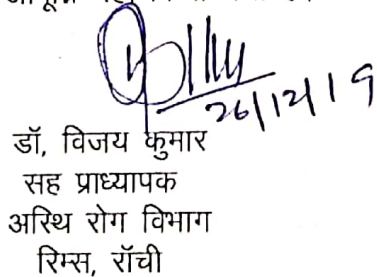 26/12/19
डॉ, विजय कुमार
सह प्राध्यापक
अस्थि रोग विभाग
रिम्स, राँची